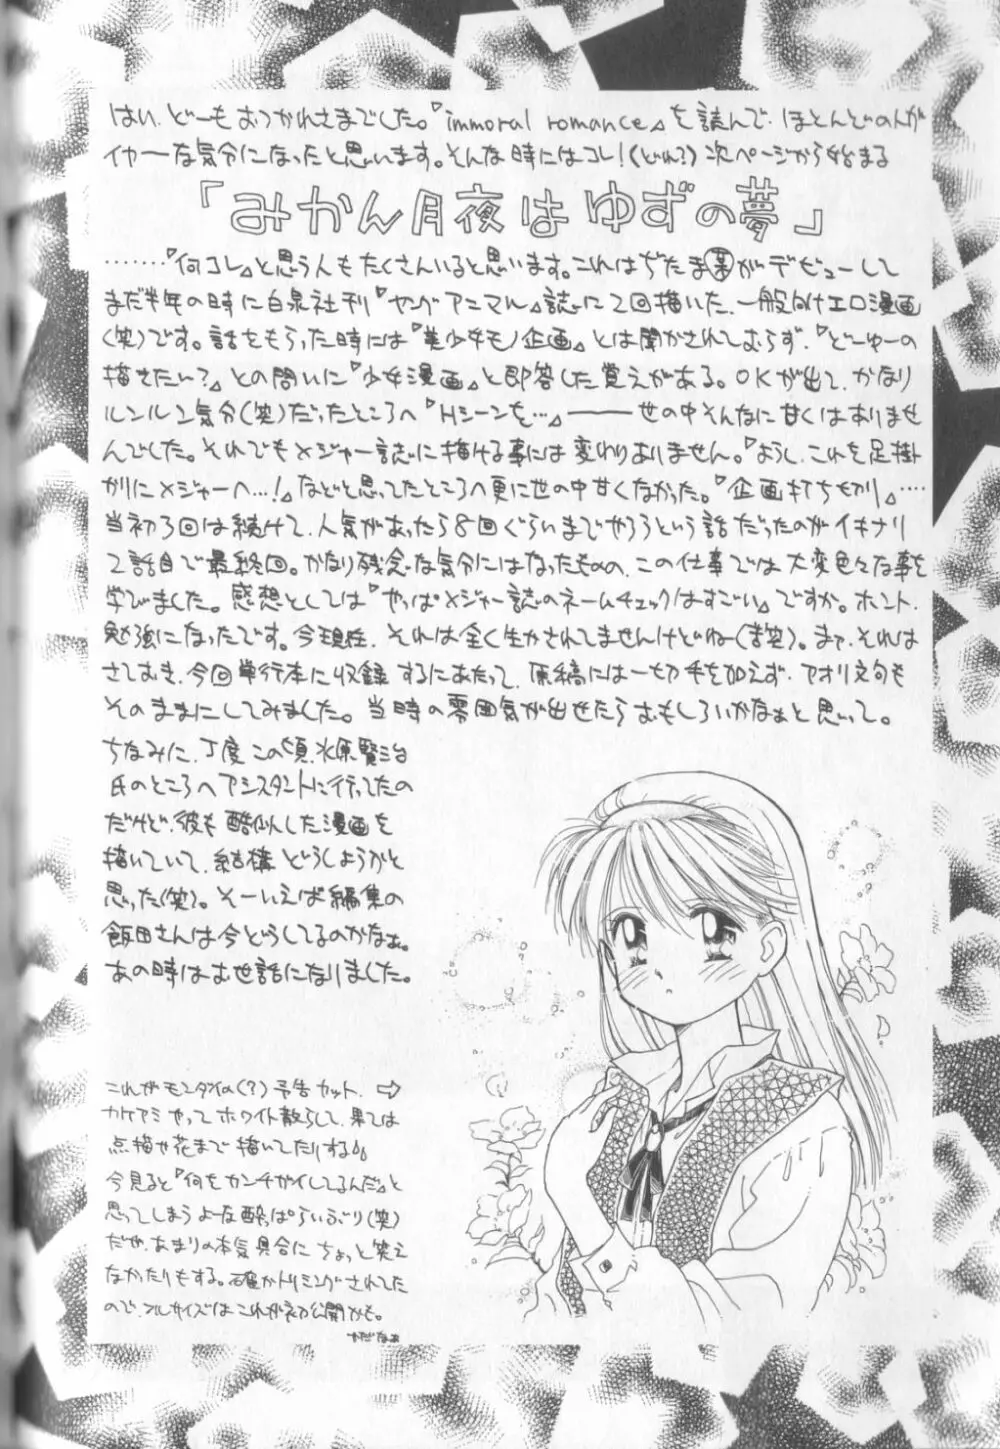 はい、どーもおつかれさまでした。『immoral romance』を読んで、ほとんどの人が
イヤーな気分になったと思います。そんな時にはコレ！(どれ？)次ページから始まる
「みかん月夜はゆずの夢」
……『何コレ』と思う人もたくさんいると思います。これはぢたま(某)がデビューして
まだ半年の時に白泉社刊『ヤングアニマル』誌に2回描いた、一般向けエロ漫画
(笑)です。話をもらった時には『美少女モノ企画』とは聞かされておらず、『どーゆーの
描きたい？』との問いに『少女漫画』と即答した覚えがある。OKが出て、かなり
ルンルン気分(笑)だったところへ『Hシーンを…』――世の中そんなに甘くはありませ
んでした。それでもメジャー誌に描ける事には変わりありません。『ようし、これを足掛
かりにメジャーへ…！』などと思ってたところへ更に世の中甘くなかった。『企画打ち切り』‥‥
当初3回は続けて、人気があったら8回ぐらいまでやろうという話だったのがイキナリ
2話目で最終回。かなり残念な気分にはなったものの、この仕事では大変色々な事を
学びました。感想としては『やっぱメジャー誌のネームチェックはすごい』ですか。ホント、
勉強になったです。今現在、それは全く生かされてませんけどね(苦笑)。まァ、それは
さておき、今回単行本に収録するにあたって、原稿には一切手を加えず、アオリ文句も
そのままにしてみました。当時の雰囲気が出せたらおもしろいかなぁと思って。
ちなみに、丁度この頃、水原賢治
氏のところへアシスタントに行ってたの
だけど、彼も酷似した漫画を
描いていて、結構どうしようかと
思った(笑)。そーいえば編集の
飯田さんは今どうしてるのかなぁ。
あの時はお世話になりました。
これがモンダイの(？)予告カット。⇨
カケアミやってホワイト散らして、果ては
点描や花まで描いてたりする。
今見ると『何をカンチガイしてるんだ』と
思ってしまうよーな酔っぱらいぶり(笑)
だや、あまりの本気具合にちょっと笑え
なかったりもする。確かトリミングされてた
ので、フルサイズはこれが初公開かも。
かだなぁ